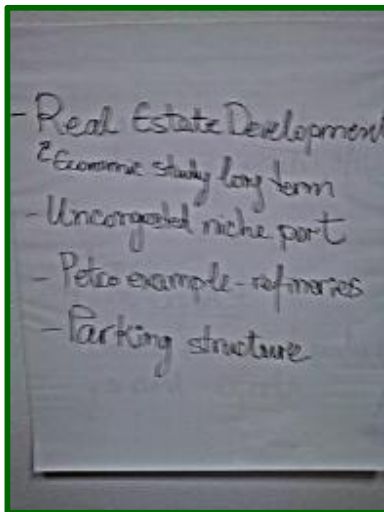 - Real Estate Development
Economic study long term
- Uncongested niche port
- Petco example - refineries
- Parking structure